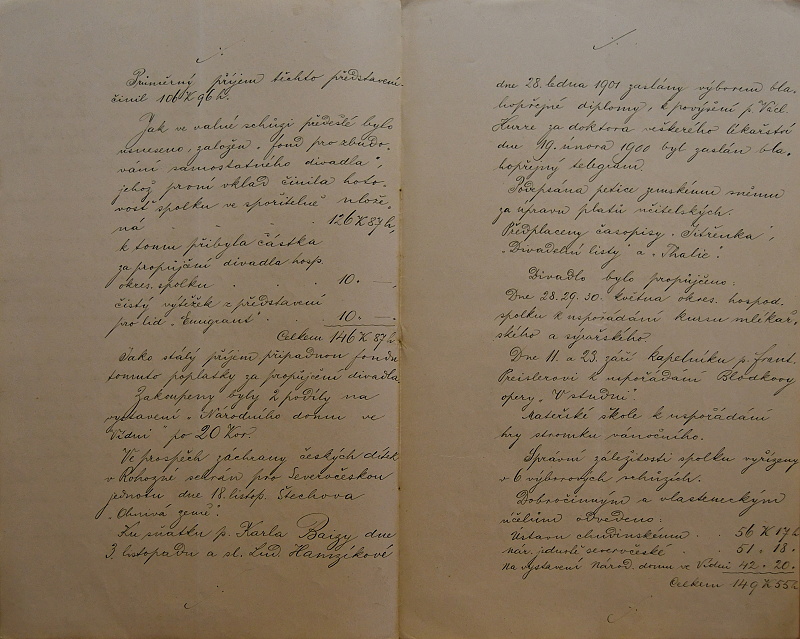 Průměrný příjem těchto představení
činil 106 K 96 h.
Jak ve valné schůzi předešlé bylo
usneseno, založen „fond pro zbudo-
vání samostatného divadla“,
jehož první vklad činila hoto-
vost spolku ve spořitelně ulože-
ná . . . . 126 K 87 h,
k tomu přibyla částka
za propůjčení divadla hosp.
okres. spolku . . . 10. —,
čistý výtěžek z představení
pro lid „Emigrant“ . . 10. —.
Celkem 146 K 87 h
Jako stálý příjem připadnou fondu
tomuto poplatky za propůjčení divadla.
Zakoupeny byly 2 podíly na
vystavení „Národního domu ve
Vídni“ po 20 Kor.
Ve prospěch záchrany českých dítek
v Rohozné sehrán pro Severočeskou
jednotu dne 18. listop. Štechova
„Ohnivá země“.
Ku sňatku p. Karla Baizy dne
3. listopadu a sl. Lud. Hamzíkové
dne 28. ledna 1901 zaslány výborem bla-
hopřejné diplomy, k povýšení p. Václ.
za doktora veškerého lékařství
dne 19. února 1900 byl zaslán bla-
hopřejný telegram.
Podepsána petice zemskému sněmu
za úpravu platů učitelských.
Předplaceny časopisy „Jitřenka“,
„Divadelní listy“ a „Thalie“.
Divadlo bylo propůjčeno:
Dne 28. 29. 30. května okres. hospod.
spolku k uspořádání kursu mlékař-
ského a sýrařského.
Dne 11. a 23. září kapelníku p. Frant.
Preislerovi k uspořádání Blodkovy
opery „V studni“.
Mateřské škole k uspořádání
hry stromku vánočního.
Správní záležitosti spolku vyřízeny
v 6 výborových schůzích.
Dobročinným a vlasteneckým
účelům odvedeno:
Ústavu chudinskému . 56 K 17 h
nár. jednotě severočeské . . 51 . 18 .
na vystavení Národ. domu ve Vídni 42 . 20 .
Celkem 149 K 55 h